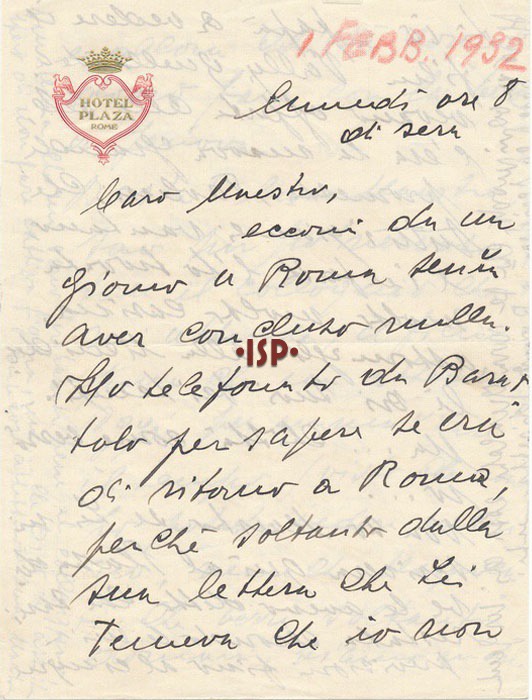 1 FEBB. 1932
HOTEL
PLAZA
ROME
Lunedì ore 8
di sera
Caro Maestro,
eccomi da un
giorno a Roma senza
aver concluso nulla.
·ISP·
Ho telefonato da Barat
tolo per sapere se era
di ritorno a Roma,
perchè soltanto dalla
sua lettera che Lei
temeva che io non